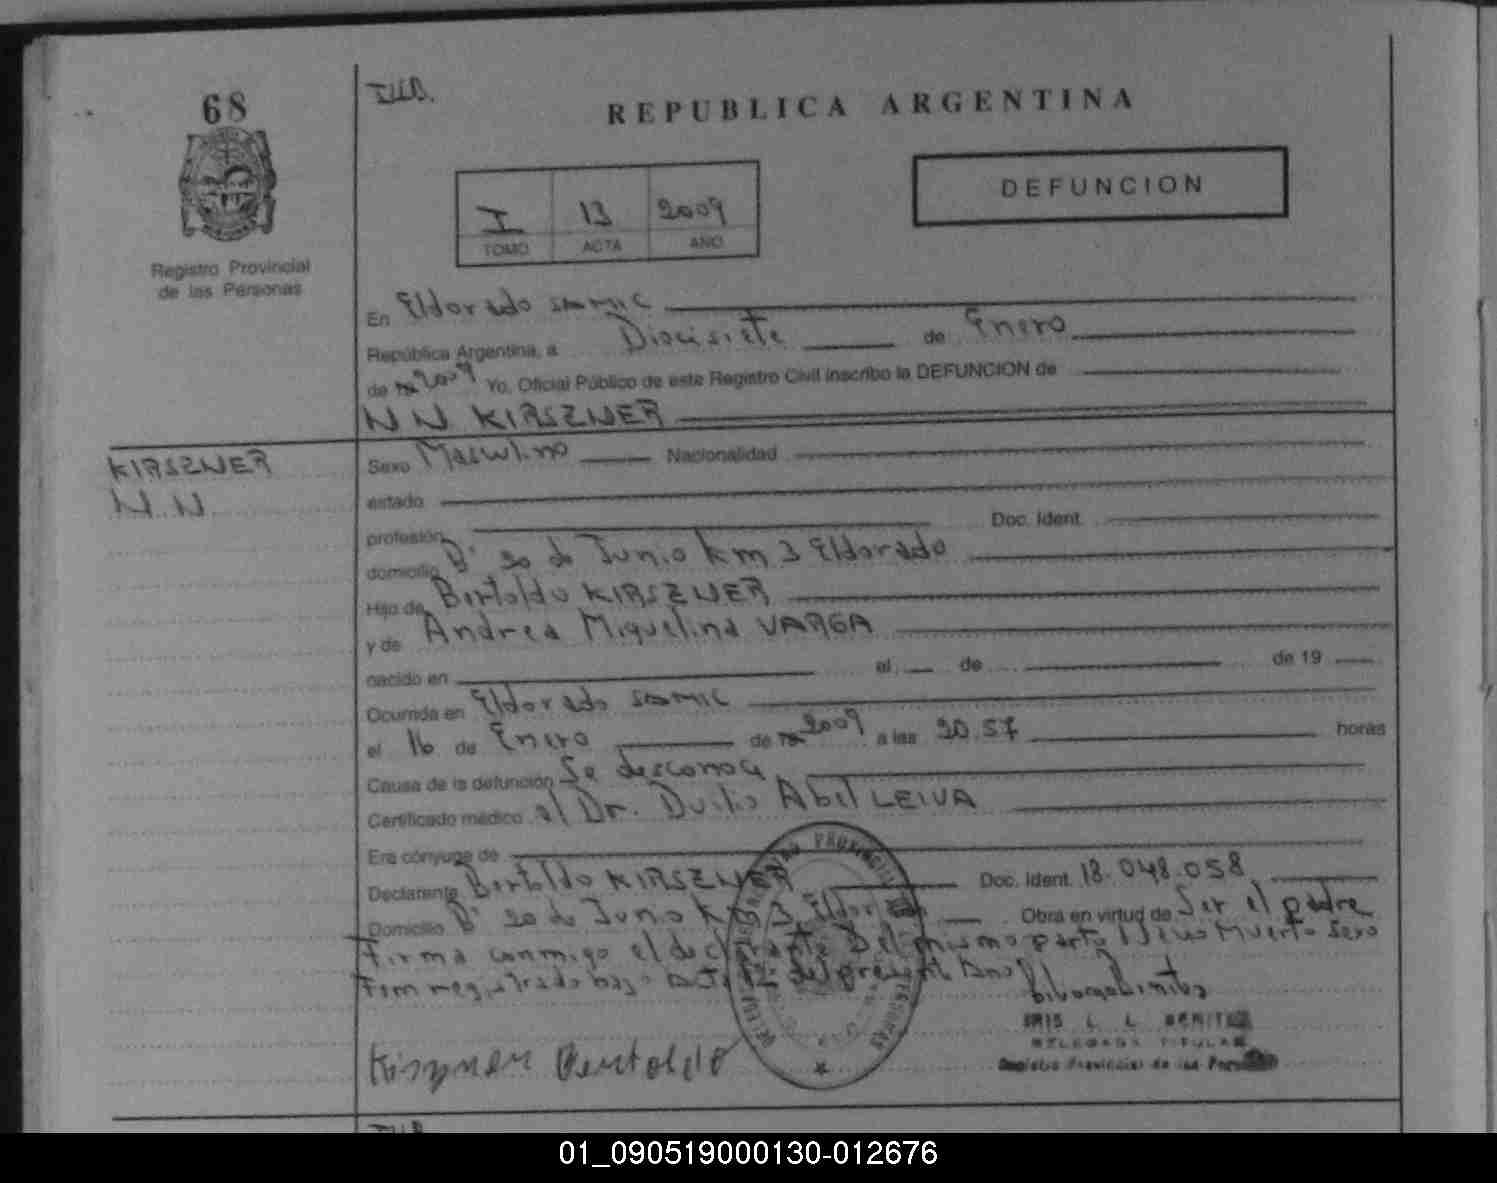 68
REPUBLICA ARGENTINA
I 13 2009
TOMO ACTA AÑO
DEFUNCION
Registro Provincial
de las Personas
En Eldorado SAMIC
República Argentina, a Diecisiete de Enero
de 2009 Yo, Oficial Público de este Registro Civil inscribo la DEFUNCION de
N N KIRSZNER
KIRSZNER
N.N
Sexo Masculino Nacionalidad
estado
profesión Doc. Ident.
domicilio Bº 20 de Junio Km 3 Eldorado
Hijo de Bertoldo KIRSZNER
y de Andrea Miguelina VARGA
nacido en el de de 19
Ocurrida en Eldorado SAMIC
el 16 de Enero de 2009 a las 20.57 horas
Causa de la defunción Se desconoce
Certificado médico el Dr. Duilio Abel LEIVA
Era cónyuge de
Declarante Bertoldo KIRSZNER Doc. Ident. 18.048.058
Domicilio Bº 20 de Junio Km 3 Eldorado Obra en virtud de Ser el padre
Firma conmigo el declarante Del mismo parto Muerto Sexo
Fem registrado bajo Acta 12 del presente Año
Kirszner Bertoldo
IRIS L. L. BENITEZ
DELEGADA TITULAR
Registro Provincial de las Personas
01_090519000130-012676